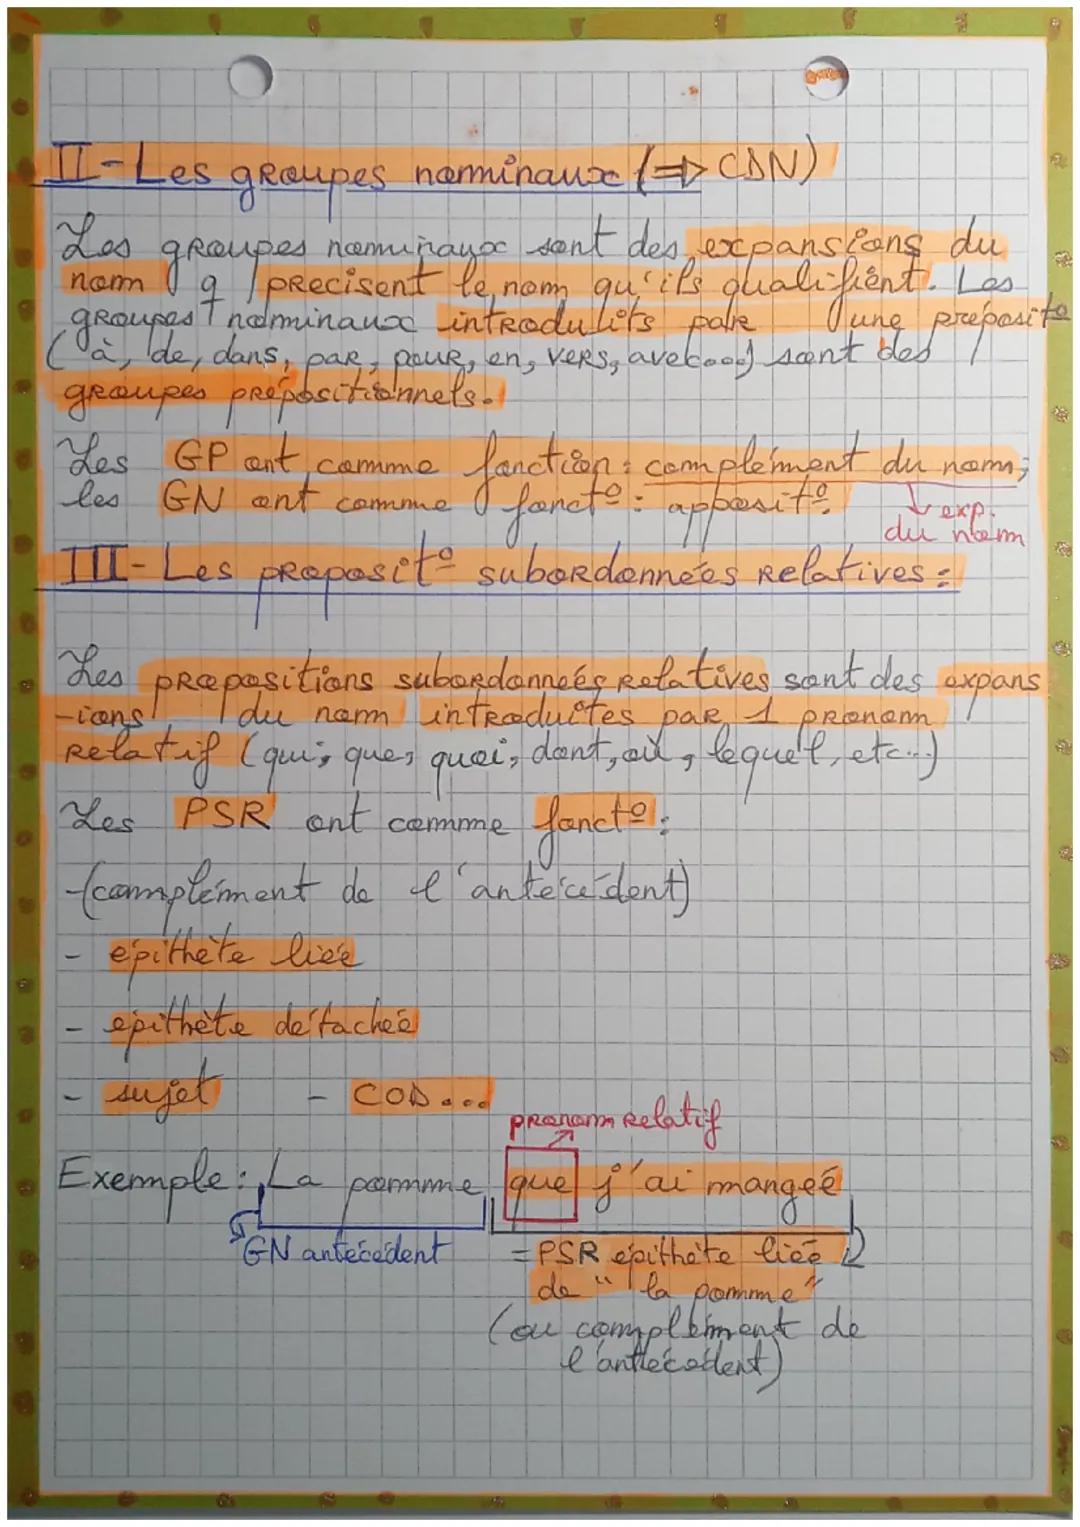 II-Les groupes nominaux (=> CDN)
Les groupes nominaux sont des expansions du
nom q précisent le nom qu'ils qualifient. Les
groupes nominaux introduits par une préposit°
(à, de, dans, par, pour, en, vers, avec...) sont des
groupes prépositionnels.
Les GP ont comme fonction : complément du nom;
les GN ont comme fonct° : apposit°.
exp.
du nom
III-Les proposit° subordonnées relatives :
Les propositions subordonnées relatives sont des expans
-ions du nom introduites par 1 pronom
relatif (qui, que, quoi, dont, où, lequel, etc...)
Les PSR ont comme fonct° :
-(complément de l'antécédent)
- épithète liée
- épithète détachée
- sujet - COD...
pronom relatif
Exemple : La pomme que j'ai mangée
GN antécédent = PSR épithète liée
de "la pomme"
(ou complément de
l'antécédent)